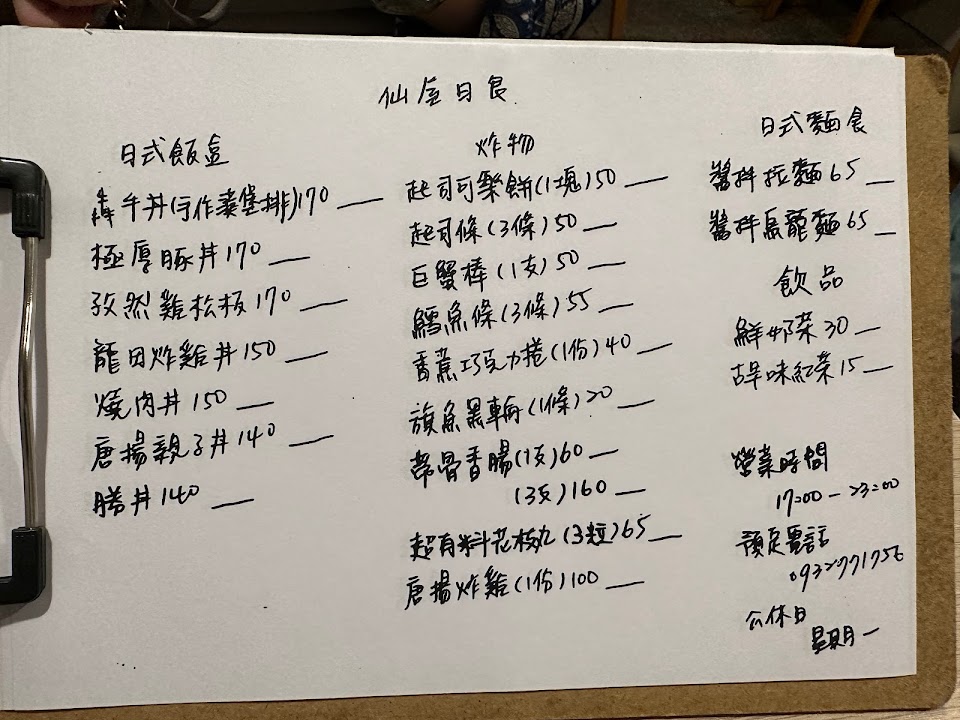 仙台日食
日式飯盒
牛丼(手作漢堡排)170
極厚豚丼170
孜然雞松板170
龍田炸雞丼150
燒肉丼150
唐揚親子丼140
勝丼140
炸物
起司可樂餅(1塊)50
起司條(3條)50
巨蟹棒(1支)50
鱈魚條(3條)55
香蕉巧克力捲(1份)40
旗魚黑輪(1條)20
帶骨香腸(1支)60
(3支)160
超有料花枝丸(3粒)65
唐揚炸雞(1份)100
日式麵食
醬拌拉麵65
醬拌烏龍麵65
飲品
鮮奶茶30
古早味紅茶15
營業時間
17:00-23:00
預定電話
0932771756
公休日
星期一